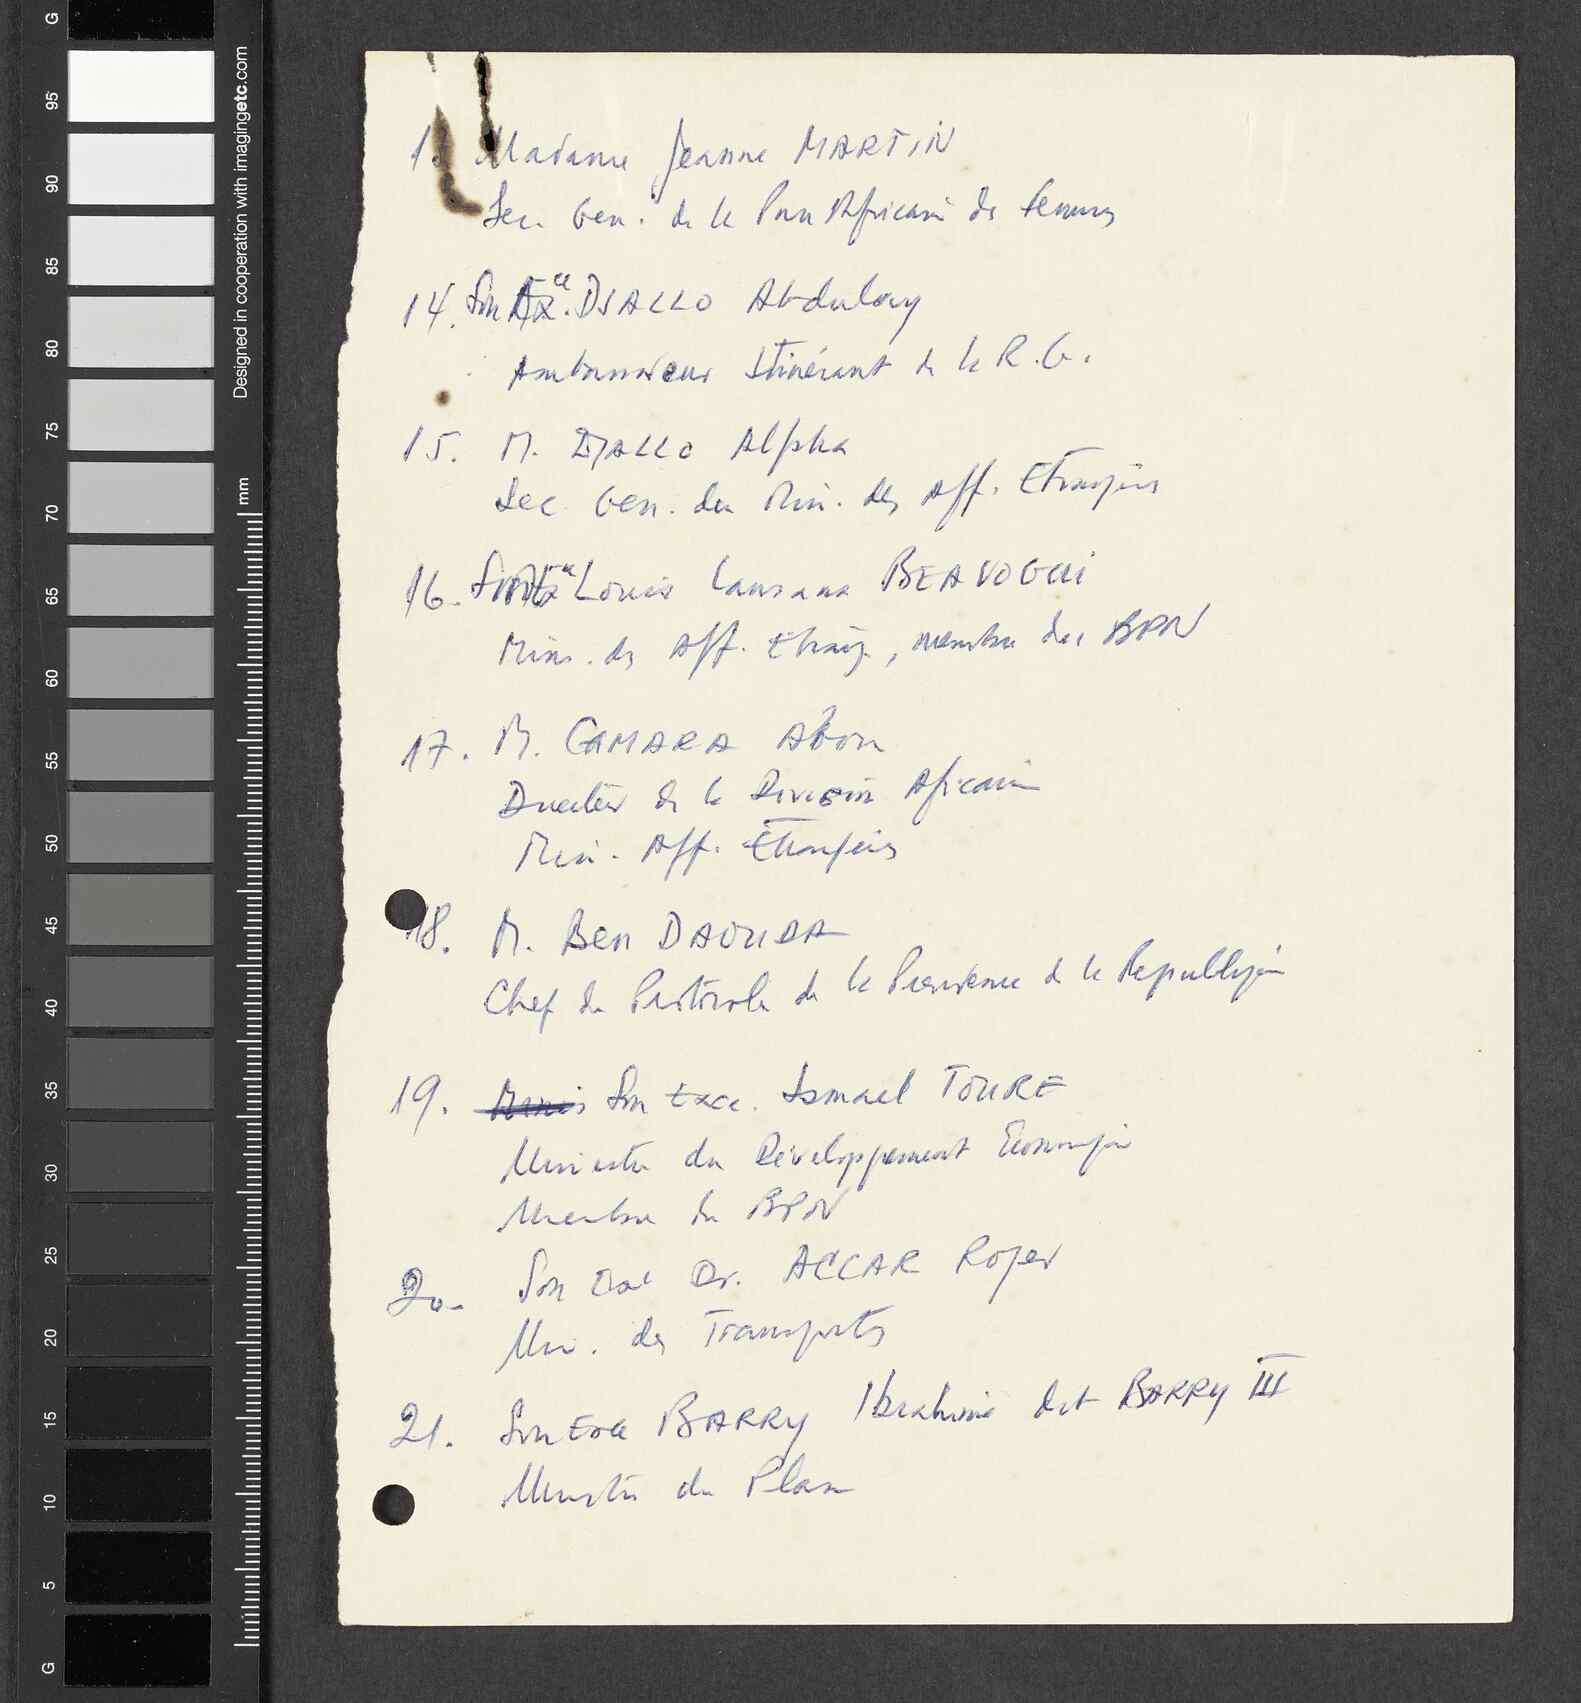 G
95
90
85
80
75
70
65
60
55
50
45
40
35
30
25
20
15
10
5
G
Designed in cooperation with imagingetc.com
mm
13 Madame Jeanne MARTIN
Sec. Gen. de la Pan Africaine des femmes
14. Son Exce. DIALLO Abdulay
Ambassadeur Itinérant de la R.G.
15. M. DIALLO Alpha
Sec. Gen. du Min. des Aff. Etrangères
16. Son Louis Lansana BEAVOGUI
Min. des Aff. Etrang., membre du BPN
17. M. CAMARA Abou
Directeur de la Division Africaine
Min. Aff. Etrangères
18. M. Ben DAOUDA
Chef du Protocole de la Presidence de la Republique
19. Son Exce. Ismael TOURE
Ministre du Développement Economique
Membre du BPN
20. Son Exce Dr. ACCAR Roger
Min. des Transports
21. Son Exce BARRY Ibrahima dit BARRY III
Ministre du Plan